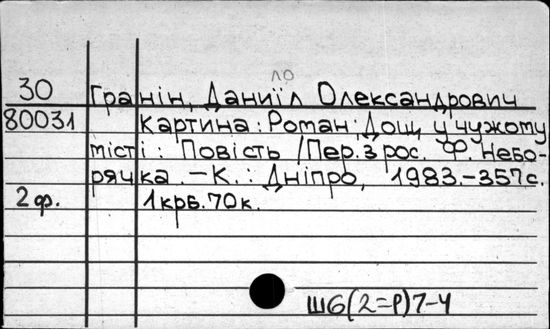 ло
30 Гранін, Даниїл Олександрович
80031 Картина: Роман; Дощ у чужому
місті: Повість /Пер. з рос. Ф. Небо-
рячка. – К.: Дніпро, 1983.–357с.
2ф. 1крб.70к.
Ш6(2=Р)7-4